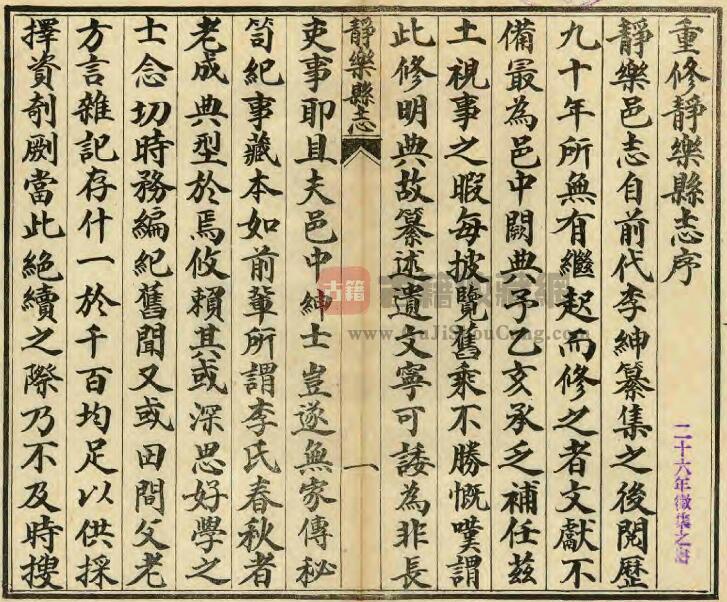 重修靜樂縣志序
靜樂邑志自前代李紳纂集之後閱歷
九十年所無有繼起而修之者文獻不
備最為邑中闕典予乙亥承乏補任茲
土視事之暇每披覽舊乘不勝慨嘆謂
此修明典故纂述遺文寧可諉為非長
靜樂縣志
一
吏事耶且夫邑中紳士豈遂無家傳秘
笥紀事藏本如前輩所謂李氏春秋者
老成典型於焉攸賴其或深思好學之
士念切時務編紀舊聞又或田間父老
方言雜記存什一於千百均足以供採
擇資剞劂當此絕續之際乃不及時搜
二十六年徵集之書
古籍
www.GuJiShouCang.com